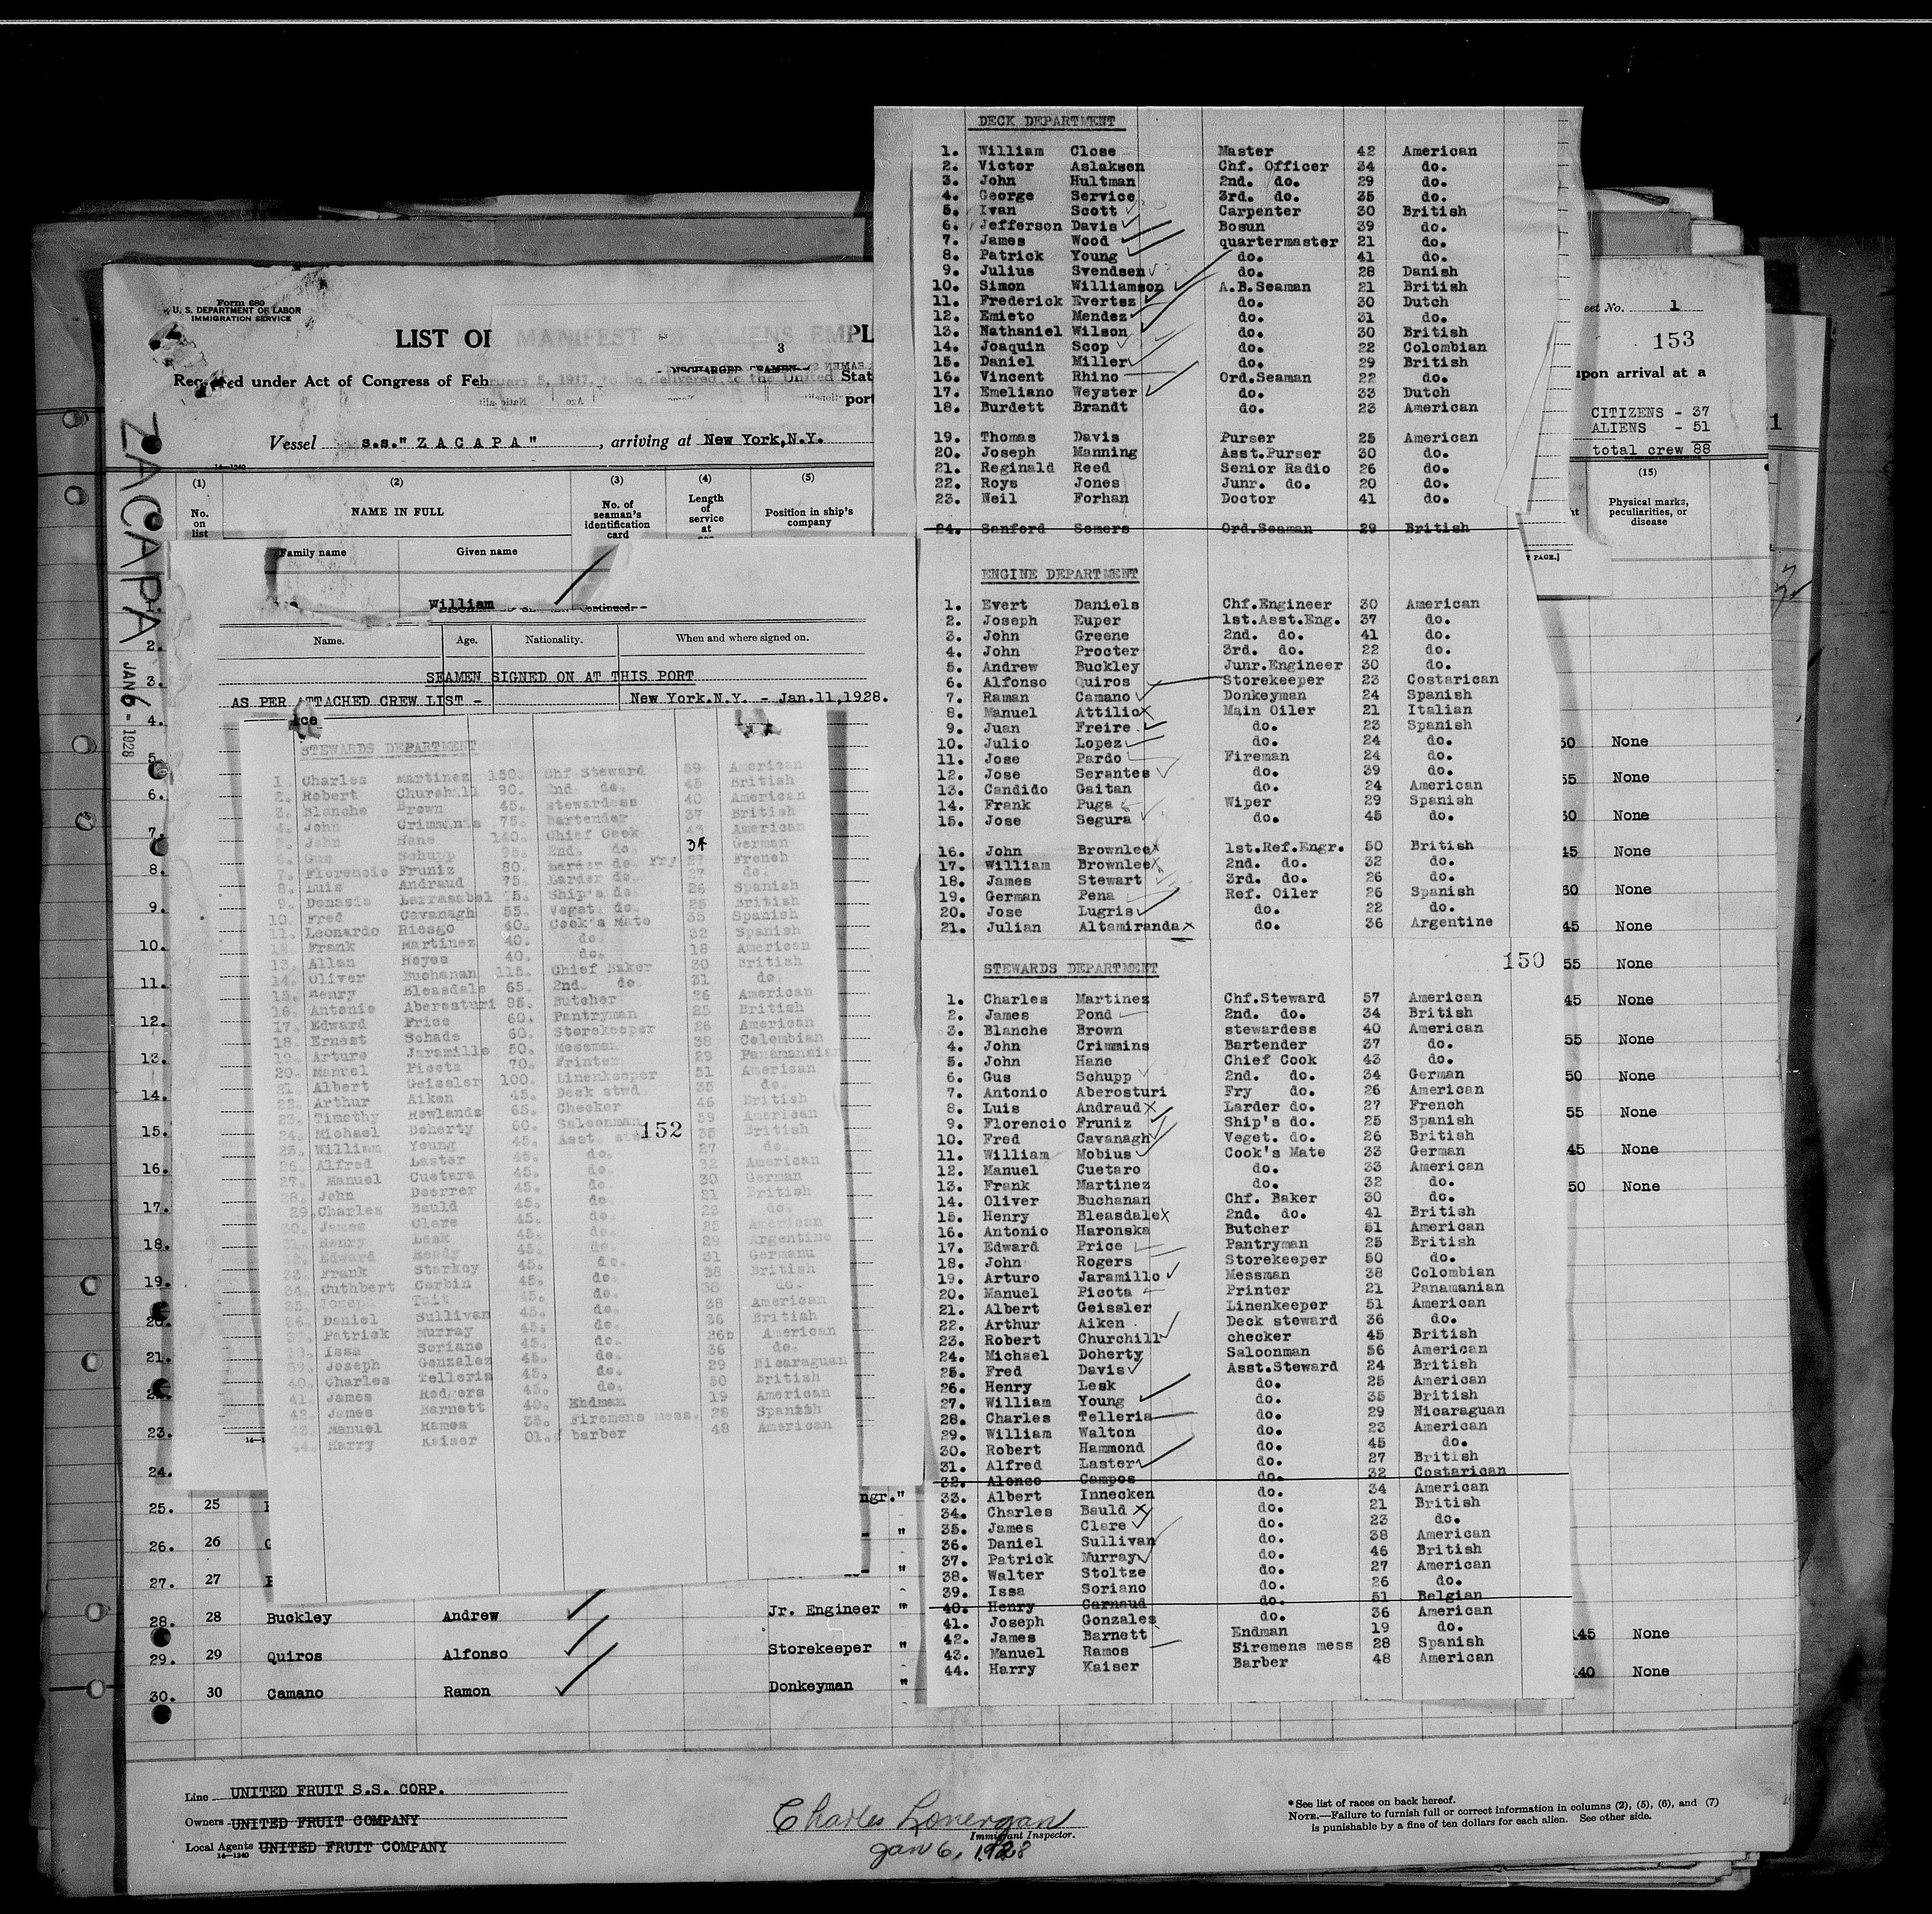 Form 680
U. S. DEPARTMENT OF LABOR
IMMIGRATION SERVICE
LIST OF MANIFEST OF ALIENS EMPL
3
under Act of Congress of February 5, 1917, to be delivered to the United Stat
port
Vessel s.s." Z A C A P A " , arriving at New York,N.Y.
14—1240
(1) (2) (3) (4) (5)
No. on list
NAME IN FULL
No. of seaman's identification card
Length of service at
Position in ship's company
Family name Given name
William
Name. Age. Nationality. When and where signed on.
SEAMEN SIGNED ON AT THIS PORT
AS PER ATTACHED CREW LIST - New York.N.Y. - Jan.11,1928.
ZACAPA
JAN 6 - 1928
STEWARDS DEPARTMENT
1. Charles Martinez 150. Chf Steward 59 American
2. Robert Churchill 90. 2nd do. 45 British
3. Blanche Brown 45. stewardess 40 American
4. John Crimmins 75. bartender 37 British
5. John Hane 140. Chief Cook 43 American
6. Gus Schupp 95. 2nd. do. 34 German
7. Florencio Fruniz 80. Larder do. Fry 27 French
8. Luis Andraud 75. Larder do. 27 do.
9. Donasio Larrasabel 75. Ship's do. 26 Spanish
10. Fred Cavanagh 55. Veget. do. 25 British
11. Leonardo Riesgo 40. Cook's Mate 35 Spanish
12. Frank Martinez 40. do. 32 Spanish
13. Allan Heyes 40. do. 18 American
14. Oliver Buchanan 115. Chief Baker 30 British
15. Henry Bleasdale 65. 2nd. do. 31 do.
16. Antonio Aberosturi 85. Butcher 26 American
17. Edward Price 60. Pantryman 25 British
18. Ernest Schade 60. Storekeeper 26 American
19. Arturo Jaramillo 50. Messman 38 Colombian
20. Manuel Picota 70. Printer 29 Panamanaian
21. Albert Geissler 100. Linenkeeper 51 American
22. Arthur Aiken 45. Deck stwd. 35 do.
23. Timothy Rowlands 65. Checker 46 British
24. Michael Doherty 60. Saloonman 59 American
25. William Young 45. Asst. stwd 35 British
152
26. Alfred Laster 45. do. 27 do.
27. Manuel Cuetara 45. do. 32 American
28. John Doerrer 45. do. 30 German
29. Charles Bauld 45. do. 21 British
30. James Clare 45. do. 23 do.
31. Henry Lesk 45. do. 25 American
32. Edward Ready 45. do. 29 Argentine
33. Frank Starkey 45. do. 31 Germanu
34. Cuthbert Corbin 45. do. 28 British
35. Joseph Tait 45. do. 38 do.
36. Daniel Sullivan 45. do. 38 American
37. Patrick Murray 45. do. 36 British
38. Issa Soriano 45. do. 26b American
39. Joseph Gonzalez 45. do. 36 do.
40. Charles Telleria 45. do. 29 Nicaraguan
41. James Rodgers 45. do. 50 British
42. James Barnett 40. Endman 19 American
43. Manuel Ramos 35. Firemens mess. 28 Spanish
44. Harry Kaiser 01. barber 48 American
DECK DEPARTMENT
1. William Close Master 42 American
2. Victor Aslaksen Chf. Officer 34 do.
3. John Hultman 2nd. do. 29 do.
4. George Service 3rd. do. 35 do.
5. Ivan Scott Carpenter 30 British
6. Jefferson Davis Bosun 39 do.
7. James Wood quartermaster 21 do.
8. Patrick Young do. 41 do.
9. Julius Svendsen do. 28 Danish
10. Simon Williamson A.B.Seaman 21 British
11. Frederick Evertsz do. 30 Dutch
12. Emieto Mendez do. 31 do.
13. Nathaniel Wilson do. 30 British
14. Joaquin Scop do. 22 Colombian
15. Daniel Miller do. 29 British
16. Vincent Rhino Ord.Seaman 22 do.
17. Emeliano Weyster do. 33 Dutch
18. Burdett Brandt do. 23 American
19. Thomas Davis Purser 25 American
20. Joseph Manning Asst.Purser 30 do.
21. Reginald Reed Senior Radio 26 do.
22. Roys Jones Junr. do. 20 do.
23. Neil Forhan Doctor 41 do.
24. Sanford Somers Ord.Seaman 29 British
ENGINE DEPARTMENT
1. Evert Daniels Chf.Engineer 30 American
2. Joseph Euper 1st.Asst.Eng. 37 do.
3. John Greene 2nd. do. 41 do.
4. John Procter 3rd. do. 22 do.
5. Andrew Buckley Junr.Engineer 30 do.
6. Alfonso Quiros Storekeeper 23 Costarican
7. Raman Camano Donkeyman 24 Spanish
8. Manuel Attilio Main Oiler 21 Italian
9. Juan Freire do. 23 Spanish
10. Julio Lopez do. 24 do.
11. Jose Pardo Fireman 24 do.
12. Jose Serantes do. 39 do.
13. Candido Gaitan do. 24 American
14. Frank Puga Wiper 29 Spanish
15. Jose Segura do. 45 do.
16. John Brownlee 1st.Ref.Engr. 50 British
17. William Brownlee 2nd. do. 32 do.
18. James Stewart 3rd. do. 26 do.
19. German Pena Ref. Oiler 26 Spanish
20. Jose Lugris do. 22 do.
21. Julian Altamiranda do. 36 Argentine
150
STEWARDS DEPARTMENT
1. Charles Martinez Chf.Steward 57 American
2. James Pond 2nd. do. 34 British
3. Blanche Brown stewardess 40 American
4. John Crimmins Bartender 37 do.
5. John Hane Chief Cook 43 do.
6. Gus Schupp 2nd. do. 34 German
7. Antonio Aberosturi Fry do. 26 American
8. Luis Andraud Larder do. 27 French
9. Florencio Fruniz Ship's do. 25 Spanish
10. Fred Cavanagh Veget. do. 26 British
11. William Mobius Cook's Mate 33 German
12. Manuel Cuetaro do. 33 American
13. Frank Martinez do. 32 do.
14. Oliver Buchanan Chf. Baker 30 do.
15. Henry Bleasdale 2nd. do. 41 British
16. Antonio Haronska Butcher 51 American
17. Edward Price Pantryman 25 British
18. John Rogers Storekeeper 50 do.
19. Arturo Jaramillo Messman 38 Colombian
20. Manuel Picota Printer 21 Panamanian
21. Albert Geissler Linenkeeper 51 American
22. Arthur Aiken Deck steward 36 do.
23. Robert Churchill checker 45 British
24. Michael Doherty Saloonman 56 American
25. Fred Davis Asst.Steward 24 British
26. Henry Lesk do. 25 American
27. William Young do. 35 British
28. Charles Telleria do. 29 Nicaraguan
29. William Walton do. 23 American
30. Robert Hammond do. 45 do.
31. Alfred Laster do. 27 British
32. Alonso Campos do. 32 Costarican
33. Albert Innecken do. 34 American
34. Charles Bauld do. 21 British
35. James Clare do. 23 do.
36. Daniel Sullivan do. 38 American
37. Patrick Murray do. 46 British
38. Walter Stoltze do. 27 American
39. Issa Soriano do. 26 do.
40. Henry Carnaud do. 51 Belgian
41. Joseph Gonzales do. 36 American
42. James Barnett Endman 19 do.
43. Manuel Ramos Firemens mess 28 Spanish
44. Harry Kaiser Barber 48 American
eet No. 1
153
upon arrival at a
CITIZENS - 37
ALIENS - 51
total crew 88
(15)
Physical marks, peculiarities, or disease
50 None
55 None
50 None
45 None
60 None
45 None
55 None
45 None
55 None
50 None
55 None
45 None
50 None
25. 25
26. 26
27. 27
28. 28 Buckley Andrew Jr. Engineer " 145 None
29. 29 Quiros Alfonso Storekeeper " 40 None
30. 30 Camano Ramon Donkeyman "
Line UNITED FRUIT S.S. CORP.
Owners UNITED FRUIT COMPANY
Local Agents UNITED FRUIT COMPANY
14—1240
Charles Lonergan
Immigrant Inspector.
Jan 6, 1928
*See list of races on back hereof.
NOTE.—Failure to furnish full or correct information in columns (2), (5), (6), and (7)
is punishable by a fine of ten dollars for each alien. See other side.